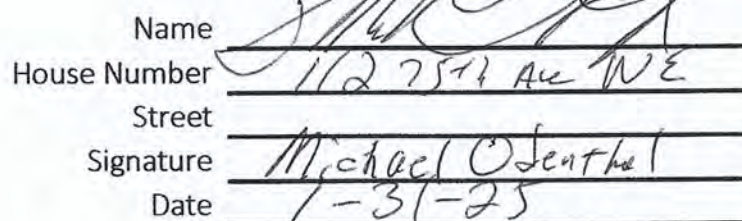 Name
House Number 112 75th Ave NE
Street
Signature Michael Odenthal
Date 1-31-25